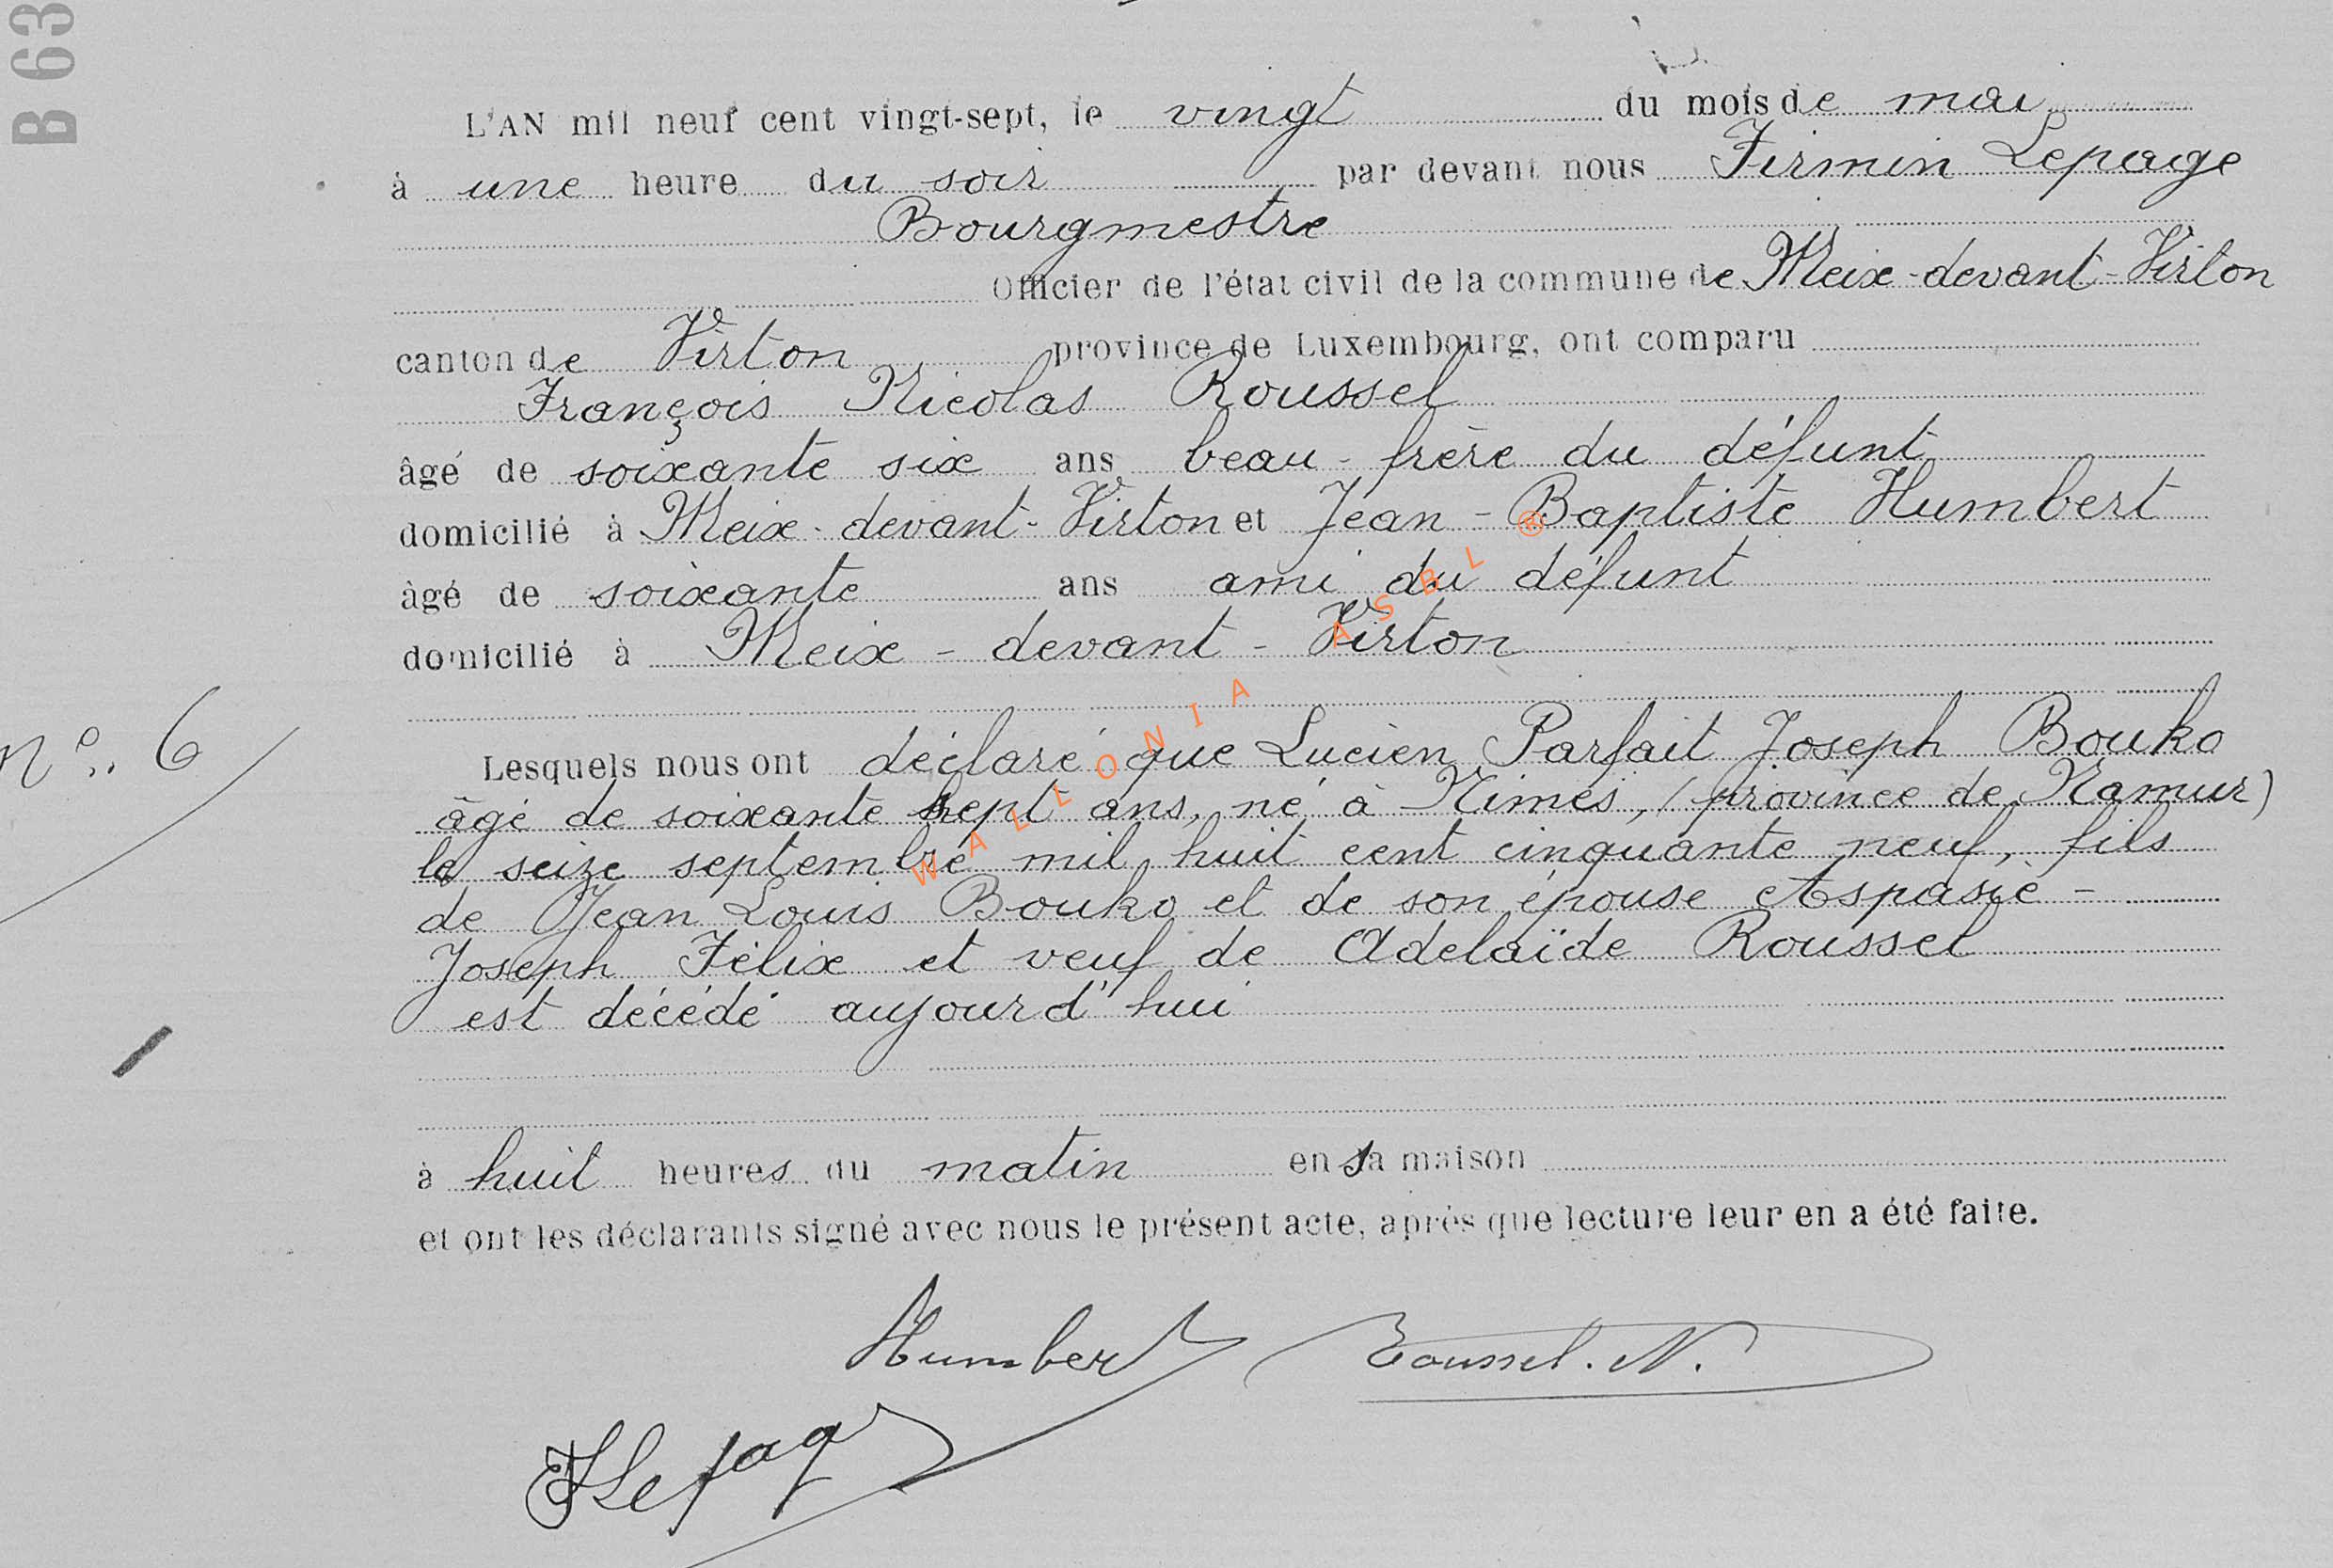 B 63
L'AN mil neuf cent vingt-sept, le vingt du mois de mai
à une heure du soir par devant nous Firmin Lepage
Bourgmestre
Officier de l'état civil de la commune de Meix-devant-Virton
canton de Virton province de Luxembourg, ont comparu
François Nicolas Roussel
âgé de soixante six ans beau-frère du défunt
domicilié à Meix-devant-Virton et Jean-Baptiste Humbert
âgé de soixante ans ami du défunt
domicilié à Meix-devant-Virton
N° 6
Lesquels nous ont déclaré que Lucien Parfait Joseph Bouko
âgé de soixante sept ans, né à Nimes, (province de Namur)
le seize septembre mil huit cent cinquante neuf, fils
de Jean Louis Bouko et de son épouse Aspasie-
Joseph Félix et veuf de Adelaïde Roussel
est décédé aujourd'hui
à huit heures du matin en sa maison
et ont les déclarants signé avec nous le présent acte, après que lecture leur en a été faite.
Humbert Roussel. N.
F Lepage
WALLONIA ASBL ®